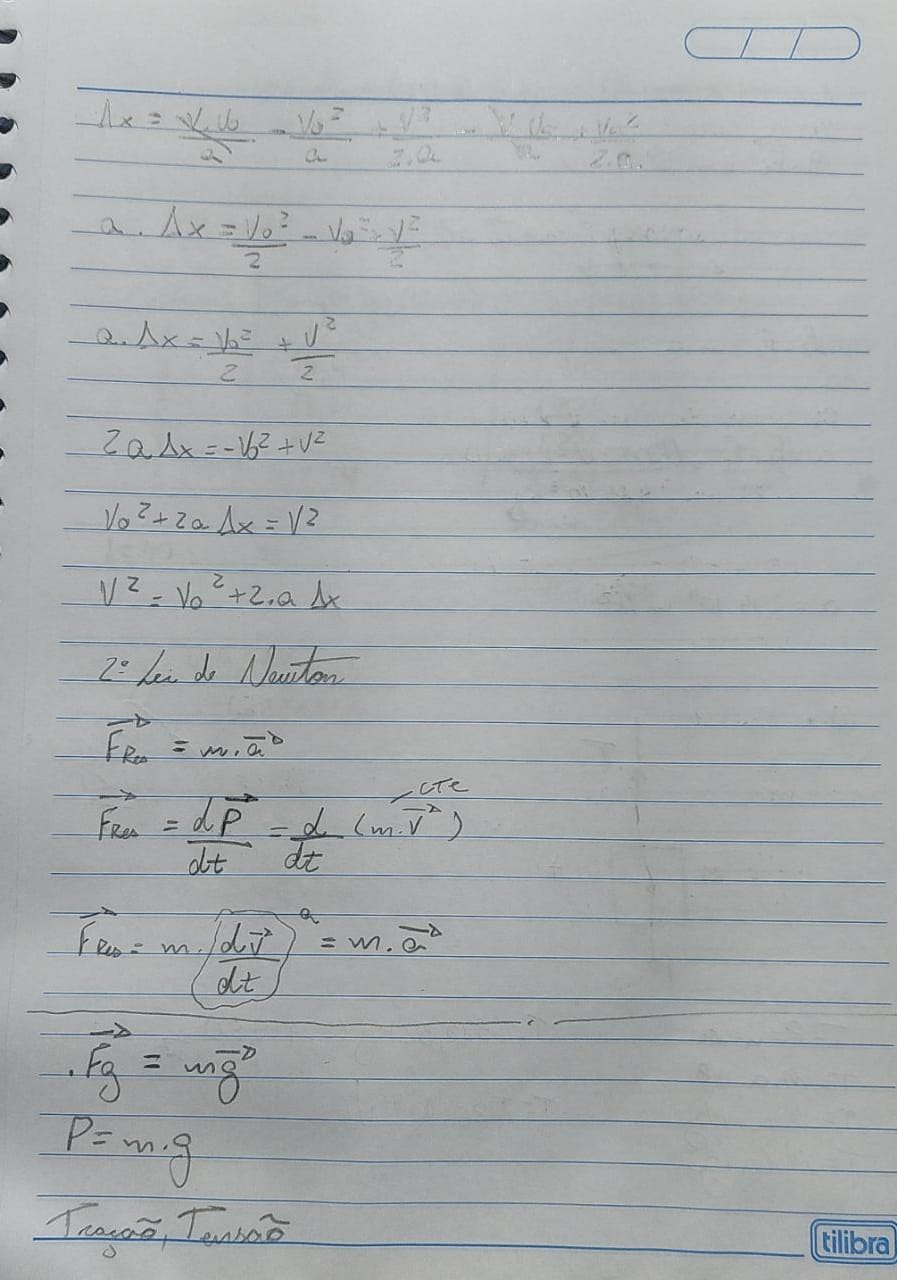 Δx = V.V₀/a - V₀²/a + V²/2.a - V.V₀/a + V₀²/2.a
a. Δx = V₀²/2 - V₀² + V²/2
a. Δx = V₀²/2 + V²/2
2aΔx = -V₀² + V²
V₀² + 2aΔx = V²
V² = V₀² + 2.a Δx
2° Lei de Newton
F⃗Res = m.a⃗
cte
F⃗Res = dP⃗/dt = d/dt (m.v⃗)
F⃗Res = m. (dv⃗/dt) a = m.a⃗
. F⃗g = mg⃗
P = m.g
Tração, Tensão
tilibra